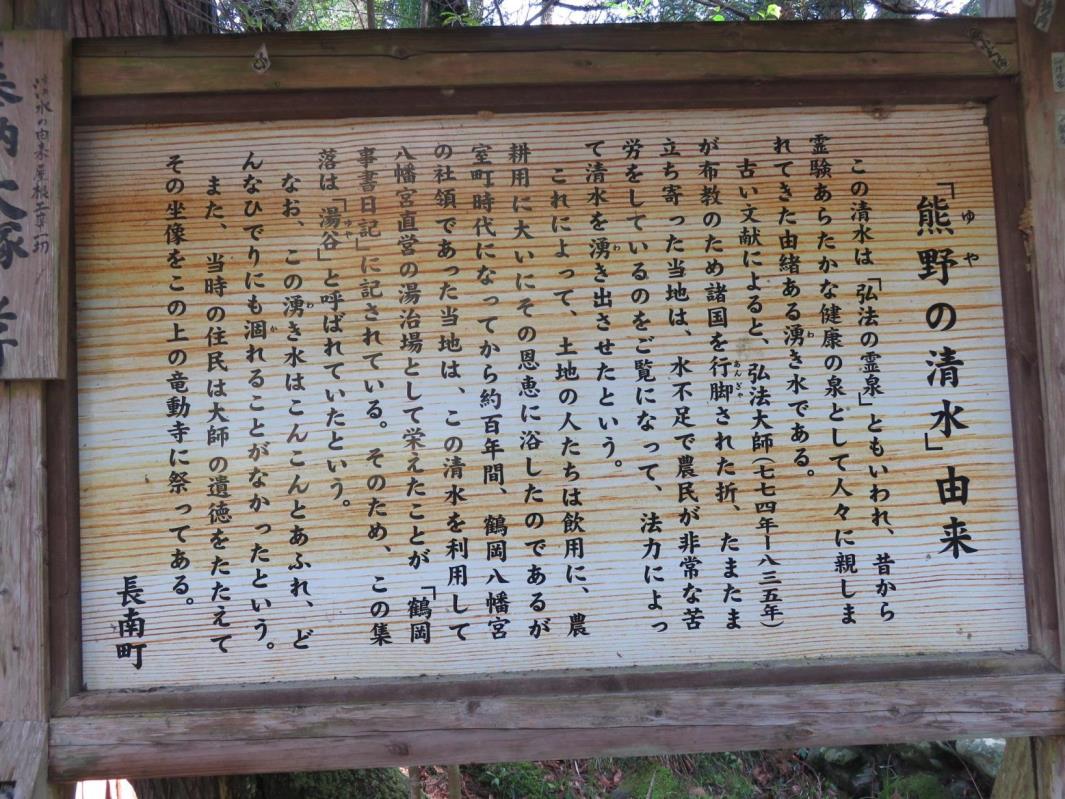 「熊野の清水」由来
ゆや
この清水は「弘法の霊泉」ともいわれ、昔から
霊験あらたかな健康の泉として人々に親しま
れてきた由緒ある湧き水である。
わ
古い文献によると、弘法大師(七七四年ー八三五年)
が布教のため諸国を行脚された折、たまたま
あんぎゃ
立ち寄った当地は、水不足で農民が非常な苦
労をしているのをご覧になって、法力によっ
て清水を湧き出させたという。
わ
これによって、土地の人たちは飲用に、農
耕用に大いにその恩恵に浴したのであるが
室町時代になってから約百年間、鶴岡八幡宮
の社領であった当地は、この清水を利用して
八幡宮直営の湯治場として栄えたことが「鶴岡
事書日記」に記されている。そのため、この集
落は「湯谷」と呼ばれていたという。
ゆや
なお、この湧き水はこんこんとあふれ、ど
わ
んなひでりにも涸れることがなかったという。
か
また、当時の住民は大師の遺徳をたたえて
その坐像をこの上の竜動寺に祭ってある。
長南町
清水の由来屋根工事一切
奉納大塚